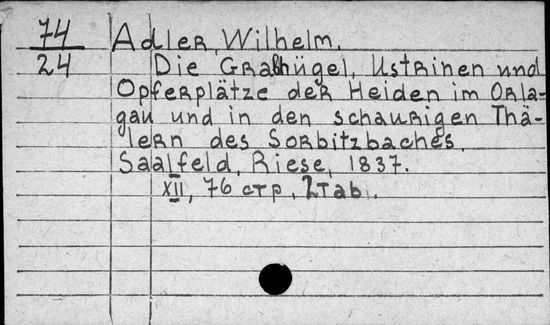 74
24
Adler, Wilhelm.
Die Grabhügel, Ustrinen und
Opferplätze der Heiden im Orla-
gau und in den schaurigen Thä-
lern des Sorbitzbaches.
Saalfeld, Riese, 1837.
XII, 76 стр., 2 Tab.